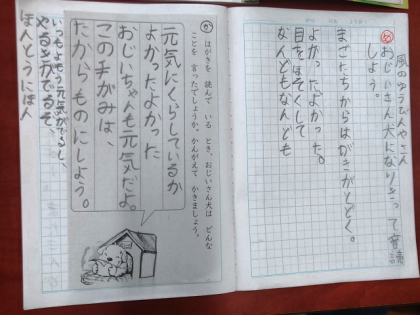 風のゆうびんやさん
めおじいさん犬になりきって音読
しよう。
まごたちからはがきがとどく。
よかったよかった。
目をほそくして
なんどもなんども
か はがきを 読んで いる とき、おじいさん犬は どんな
ことを 言ったでしょうか。かんがえて かきましょう。
元気にくらしているか
よかったよかった
おじいちゃんも元気だよ。
この手がみは、
たからものにしよう。
いつもよもう元気がでるし、
やる気がでるぞ、
ほんとうに